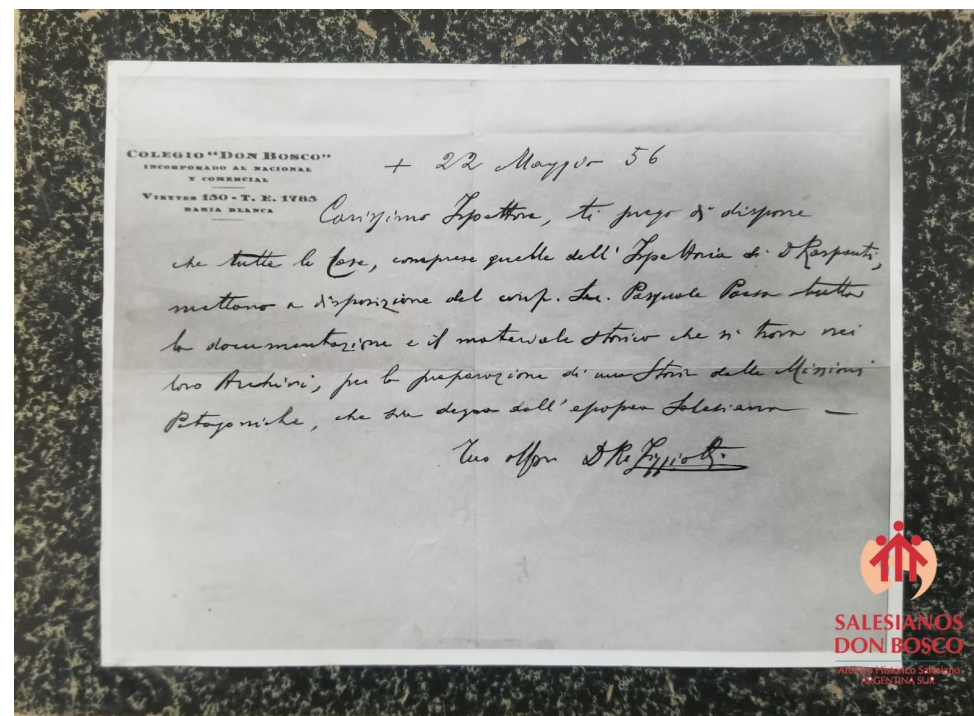 COLEGIO "DON BOSCO"
INCORPORADO AL NACIONAL
Y COMERCIAL
VIEYTES 150 - T. E. 1785
BAHIA BLANCA
+ 22 Maggio 56
Carissimo Ispettore, ti prego di disporre
che tutte le Case, comprese quelle dell' Ispettoria di D Raspanti,
mettano a disposizione del conf. Sac. Pasquale Paesa tutta
la documentazione e il materiale storico che si trova nei
loro Archivi, per la preparazione di una Storia delle Missioni
Patagoniche, che sia degna dell' epopea Salesiana —
Tuo affmo D Re Ziggiotti
SALESIANOS
DON BOSCO
Archivo Histórico Salesiano
ARGENTINA SUR